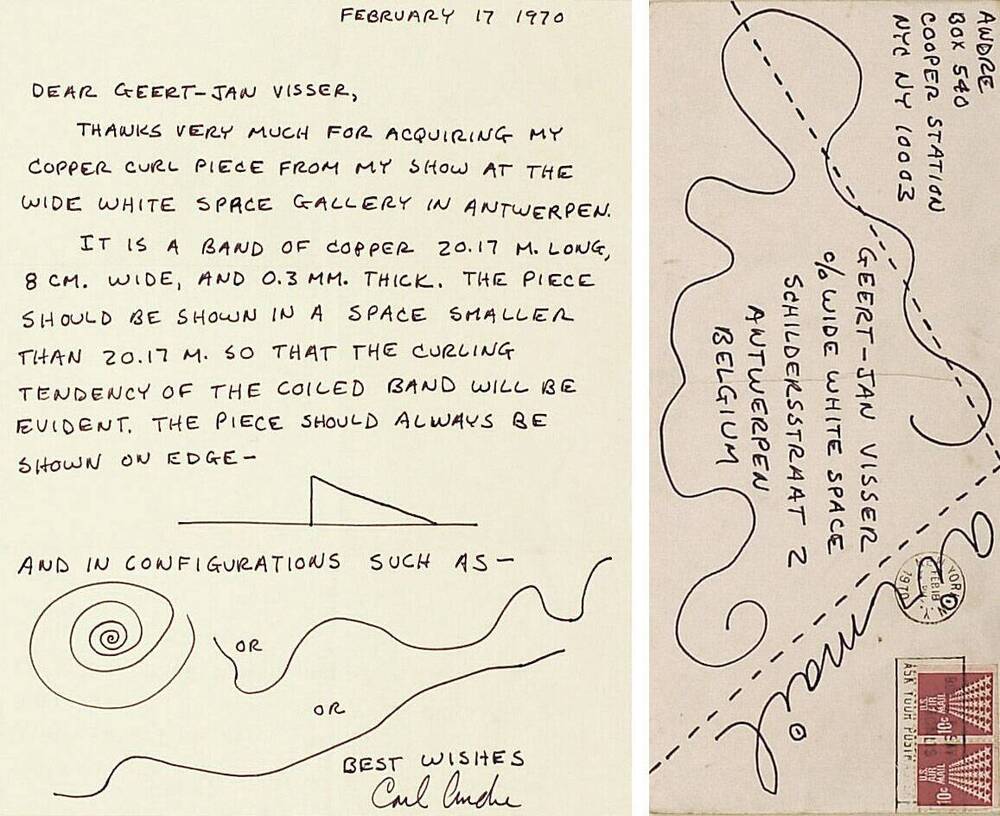 FEBRUARY 17 1970
DEAR GEERT-JAN VISSER,
THANKS VERY MUCH FOR ACQUIRING MY
COPPER CURL PIECE FROM MY SHOW AT THE
WIDE WHITE SPACE GALLERY IN ANTWERPEN.
IT IS A BAND OF COPPER 20.17 M. LONG,
8 CM. WIDE, AND 0.3 MM. THICK. THE PIECE
SHOULD BE SHOWN IN A SPACE SMALLER
THAN 20.17 M. SO THAT THE CURLING
TENDENCY OF THE COILED BAND WILL BE
EVIDENT. THE PIECE SHOULD ALWAYS BE
SHOWN ON EDGE—
AND IN CONFIGURATIONS SUCH AS—
OR
OR
BEST WISHES
Carl Andre
ANDRE
BOX 540
COOPER STATION
NYC NY 10003
GEERT-JAN VISSER
c/o WIDE WHITE SPACE
SCHILDERSSTRAAT 2
ANTWERPEN
BELGIUM
air mail
YORK, N.Y.
FEB 18
1970
ASK YOUR POST
U.S. AIR MAIL 10c
U.S. AIR MAIL 10c